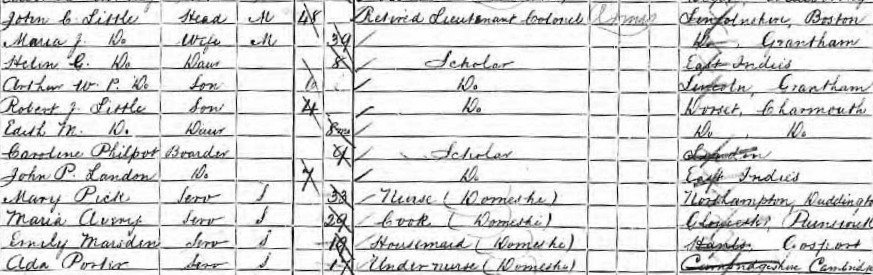 John C. Little Head M 48 Retired Lieutenant Colonel (Army) Lincolnshire, Boston
Maria J. Do Wife M 39 Do, Grantham
Helen C. Do Daur 8 Scholar East Indies
Arthur W. P. Do Son Do Lincoln, Grantham
Robert J. Little Son 4 Do Dorset, Charmouth
Edith M. Do Daur 8mo Do, Do
Caroline Philpot Boarder 9 Scholar London
John P. Landon Do 7 Do East Indies
Mary Pick Serv S 33 Nurse (Domestic) Northampton, Duddington
Maria Avery Serv S 29 Cook (Domestic)
Emily Marsden Serv S 19 Housemaid (Domestic) Hants, Gosport
Ada Porter Serv S 17 Under nurse (Domestic) Cambridgeshire